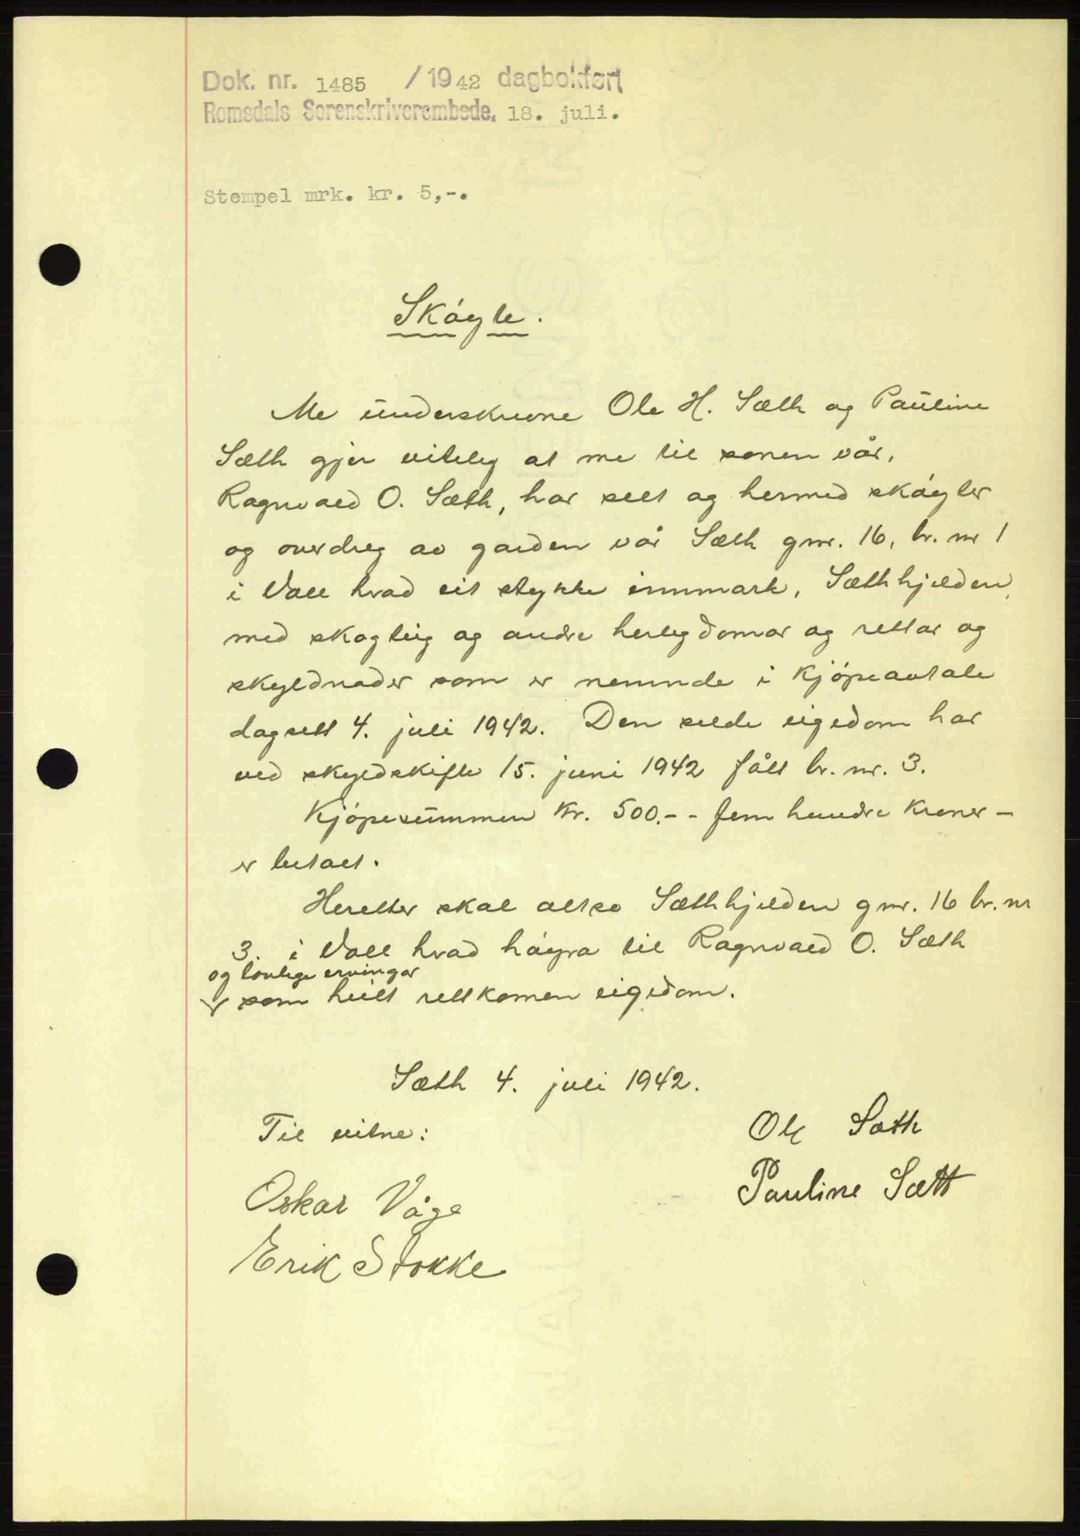 Dok. nr. 1485 / 1942 dagbokført
Romsdals Sorenskriverembede, 18. juli.
Stempel mrk. kr. 5,-.
Skøyte.
Me underskrevne Ole H. Sæth og Pauline
Sæth gjer viteleg at me til sonen vår,
Ragnvald O. Sæth, har selt og hermed skøyter
og overdreg av garden vår Sæth gnr. 16, br. nr 1
i Voll hvad eit stykke innmark, Sæthhjelden,
med skogteig og andre herlegdomar og rettar og
skyldnader som er nemnde i kjøpeavtale
dagsett 4. juli 1942. Den selde eigedom har
ved skyldskifte 15. juni 1942 fått br. nr. 3.
Kjøpesummen kr. 500.-- fem hundre kroner —
er betalt.
Heretter skal altso Sæthhjelden gnr. 16 br. nr
3. i Voll hvad høyra til Ragnvald O. Sæth
og lovlige ervingar
som heilt rettkomen eigedom.
Sæth 4. juli 1942.
Til vitne:
Ole Sæth
Pauline Sæth
Oskar Våge
Erik Stokke